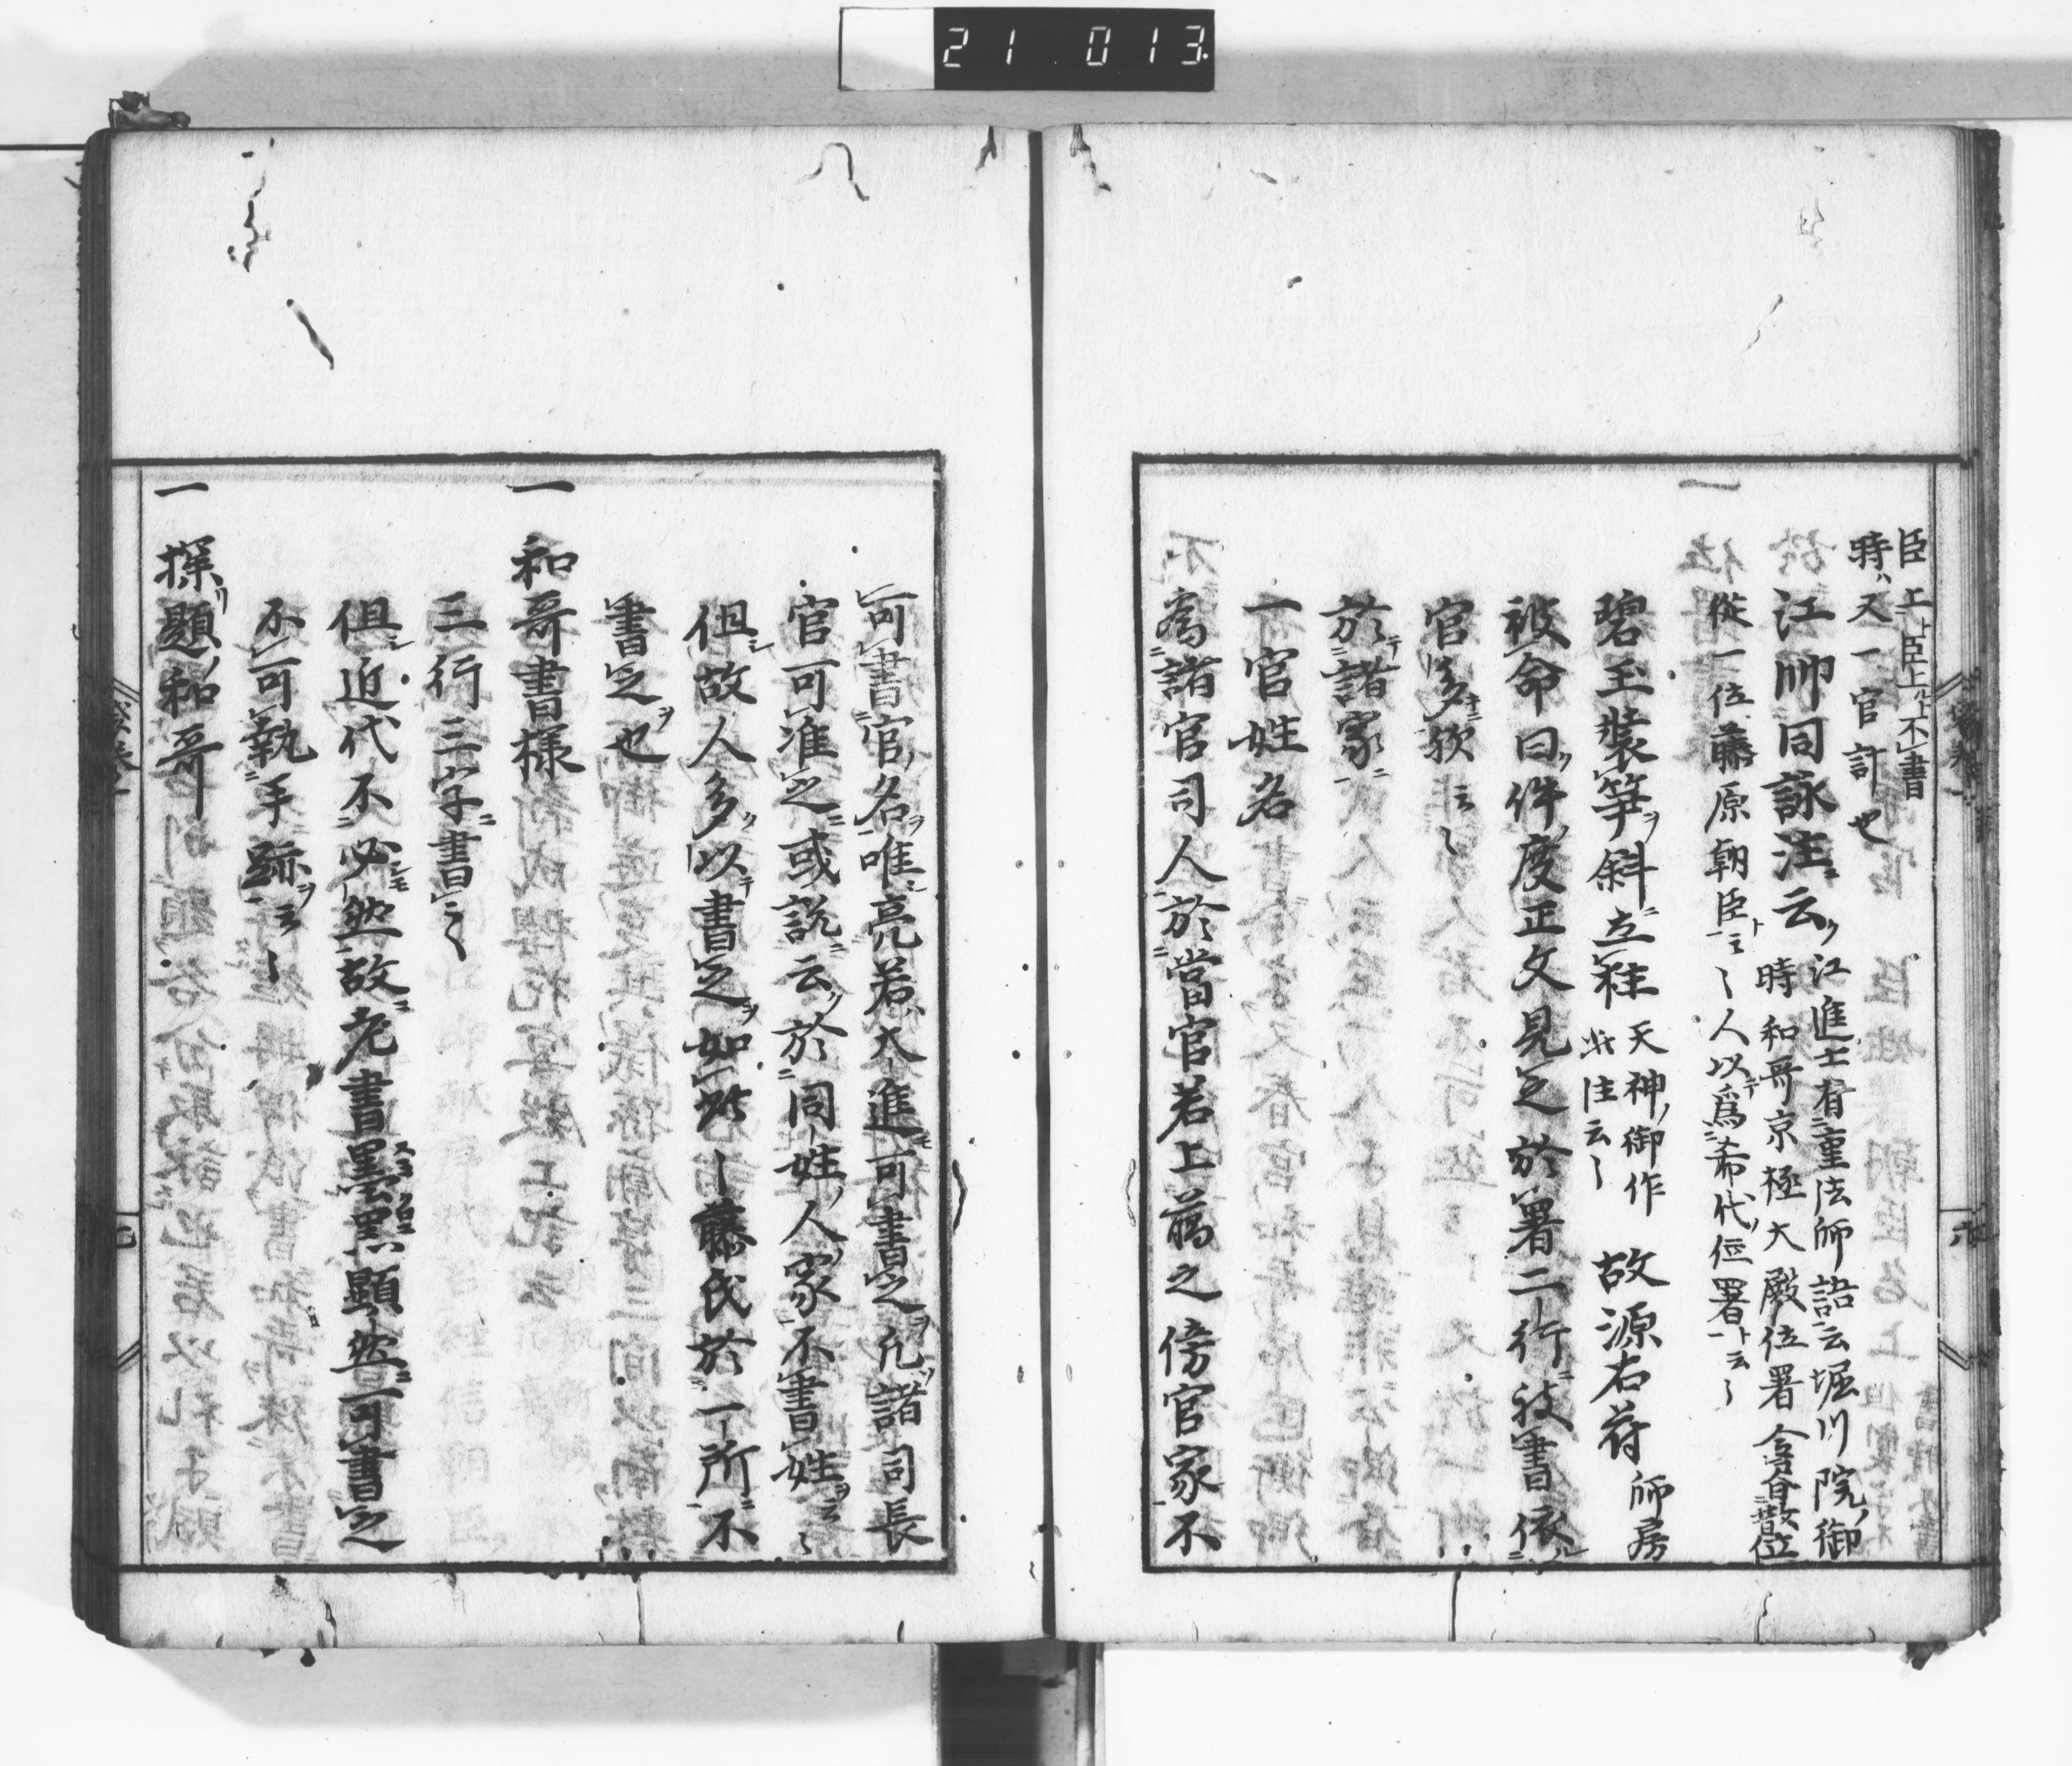 21 013
臣上ト臣上ルト不書
時ハ又一官計也
江帥同詠注ニ云ク
江進士有重法師語云堀川院ノ御
時和哥京極大殿位署
從一位藤原朝臣ト云〻人以テ爲希代ノ位署ト云〻
碧玉裝箏ヲ斜ニ立柱
天神ノ御作
此注云〻
故源右府
師房
被命曰ク件ノ度正文見之於署二行ニ被書依
官多ナルニ歟云〻
於テ諸家ニ
一官姓名
爲諸官司人於當官若上﨟之傍官家不
可書官ノ名ヲ唯シ亮若ハ大進モ可書之ヲ凡ソ諸司長
官可准之ニ或説ニ云ク於同姓ノ人ノ家ニ不書姓ヲ云〻
但シ故人多ク以テ書之ヲ如此〻藤氏於一所ニ不
書之ヲ也
一 和哥書樣
三行三字ニ書云〻
但シ近代不必シモ然故ニ老書墨黑顯然ニ可書之
不可執手跡ヲ云〻
一 探リ題ノ和哥